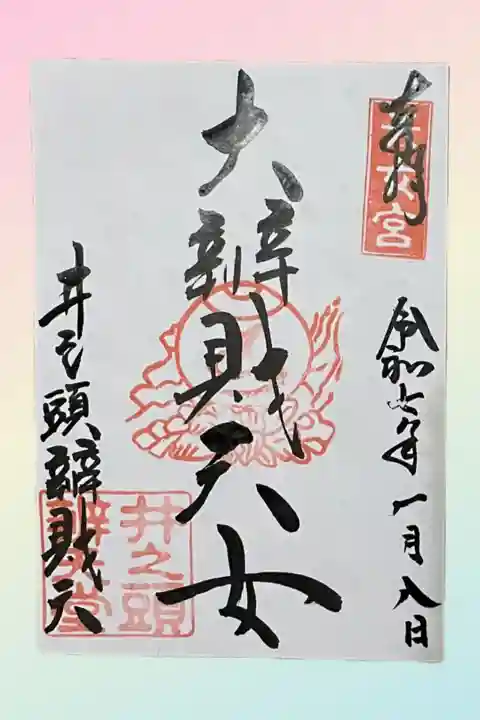 奉拝
天女宮
令和七年一月八日
大辨財天女
井之頭辨財天
井之頭
辨財天堂